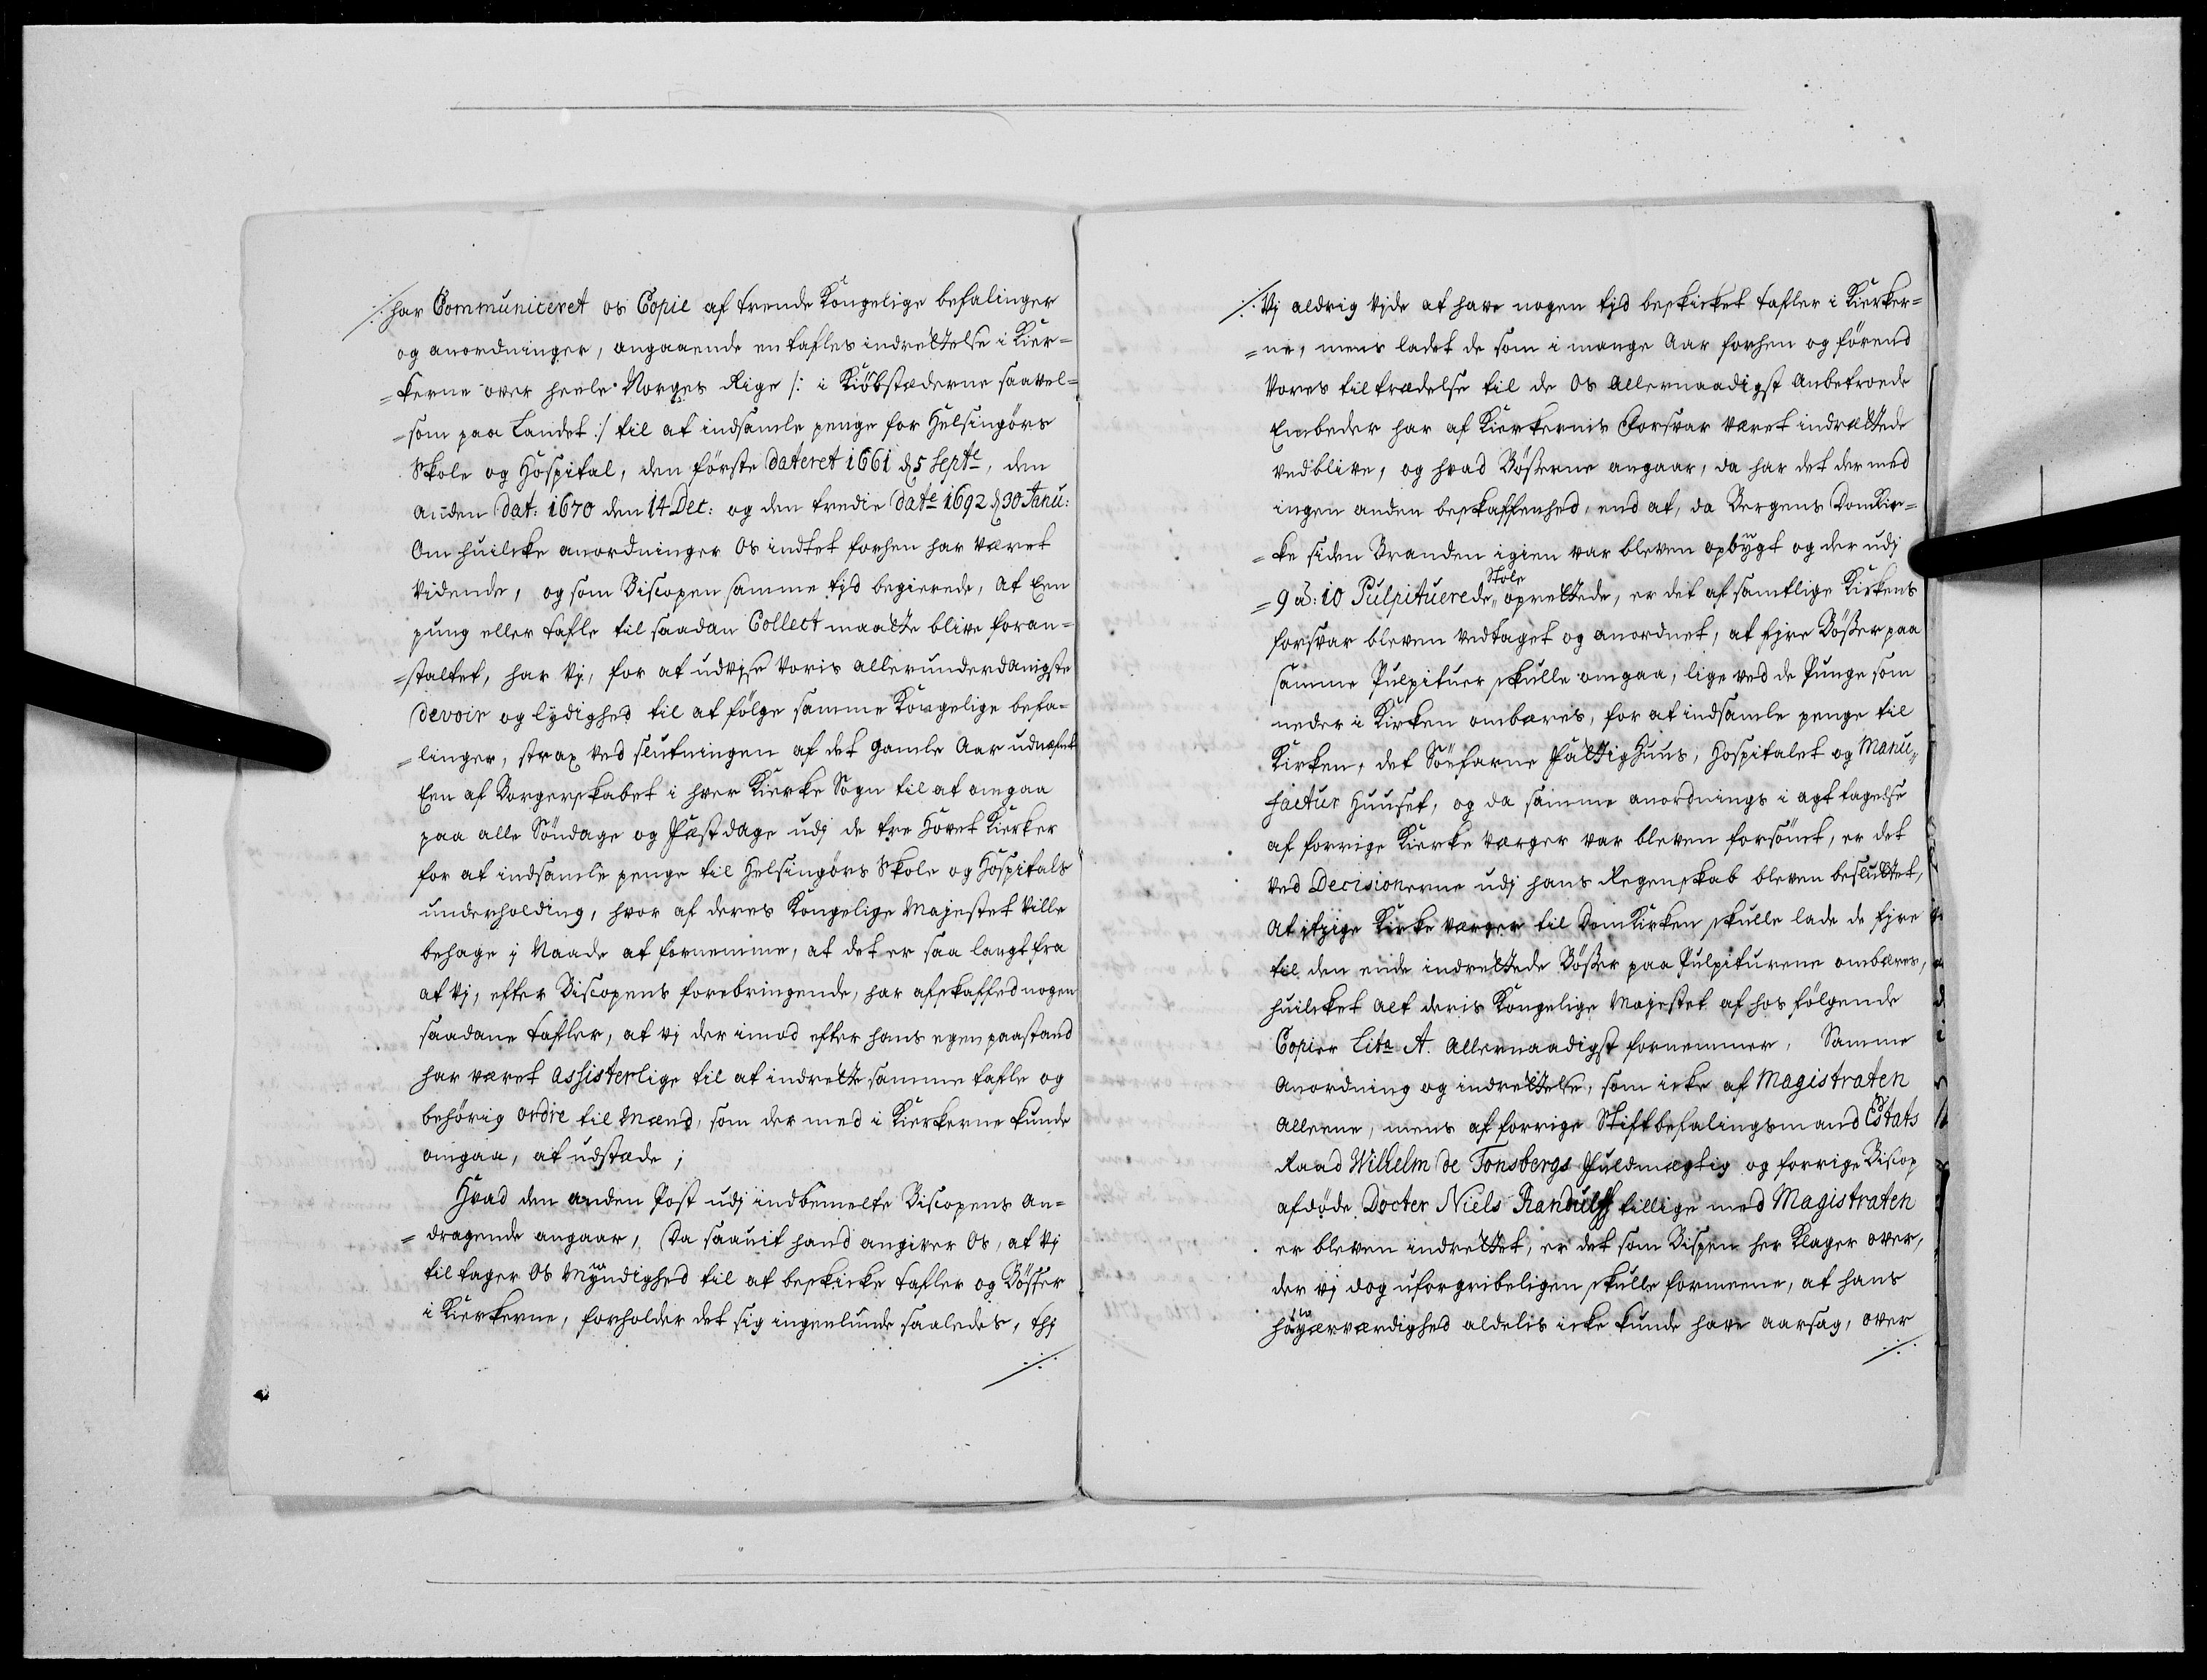 har Communiceret os Copie af trende Kongelige befalinger
og anordninger, angaaende en tafles indrettelse i Kier=
=kerne over heele Norges Rige /: i Kiøbstæderne saavel=
=som paa Landet :/ til at indsamle penge for Helsingörs
Skole og Hospital, den förste dateret 1661 d 5 Septe, den
anden Dat: 1670 den 14 Dec: og den tredie Date 1692 d 30 Janu:
Om huilcke anordninger Os indtet forhen har været
Vidende, og som Biscopen samme tjd begierede, at Een
pung eller tafle til saadan Collect maatte blive foran=
=staltet, har Vj, for at udvise Voris allerunderdanigste
devoir og lydighed til at fölge samme Kongelige befa=
=linger, strax ved slutningen af det gamle Aar udnæfnt
Een af Borgerskabet i hver Kierke Sogn til at omgaa
paa alle Söndage og Fæstdage udj de tre Hovet Kierker
for at indsamle penge til Helsingörs Skole og Hospitals
underholding, hvor af deres Kongelige Majestet ville
behage j Naade at fornemme, at det er saa langt fra
at Vj, efter Biscopens forebringende, har afskaffed nogen
saadane tafler, at vj der imod efter hans egen paastand
har været assisterlige til at indrette samme tafle og
behörig ordre til Mænd, som der med i Kierkerne kunde
omgaa, at udstæde;
Hvad den anden Post udj indbemelte Biscopens An=
=dragende angaar, Da saavit hand angiver Os, at Vj
til tager Os Myndighed til at beskicke tafler og Bösser
i Kierkerne, forholder det sig ingenlunde saaledes, thj
Vj aldrig Vide at have nogen tjd beskicket tafler i Kierker=
=ne, mens ladet de som i mange Aar forhen og förend
Vores tiltrædelse til de Os Allernaadigst Anbetroede
Embeder har af Kierkernis Forsvar været indrættede
vedblive, og hvad Bösserne angaar, da har det der med
ingen anden beskaffenhed, end at, da Bergens DomKir=
=ke siden Branden igien var bleven opbygt og der udj
Stole
=9 à: 10 Pulpituerede oprettede, er det af samtlige Kirkens
forsvar bleven vedtaget og anordnet, at fjre Bösser paa
samme Pulpituer skulle omgaa, lige ved de Punge som
neder i Kirken ombæres, for at indsamle penge til
Kirken, det Söefarne FattigHuus, Hospitalet og Manu=
factur Huuset, og da samme anordnings i agt tagelse
af forrige Kierke værger var bleven forsömt, er det
ved Decisionerne udj hans Regenskab bleven besluttet,
At itzige Kirke værger til DomKirken skulle lade de fjre
til den ende indrettede Bösser paa Pulpiturene ombæres,
huilcket Alt deris Kongelige Majestet af hos fölgende
Copier Litr A. Allernaadigst fornemmer, Samme
Anordning og indrettelse, som icke af Magistraten
Alleene, mens af forrige Stiftbefalingsmand Estats
Raad Wilhelm de Tonsbergs Fuldmægtig og forrige Biscop
afdøde Docter Niels Randulff tillige med Magistraten
er bleven indrettet, er det som Bispen her Klager over,
der vj dog uforgribeligen skulle formeene, at hans
höyærværdighed aldelis icke kunde have aarsag, over